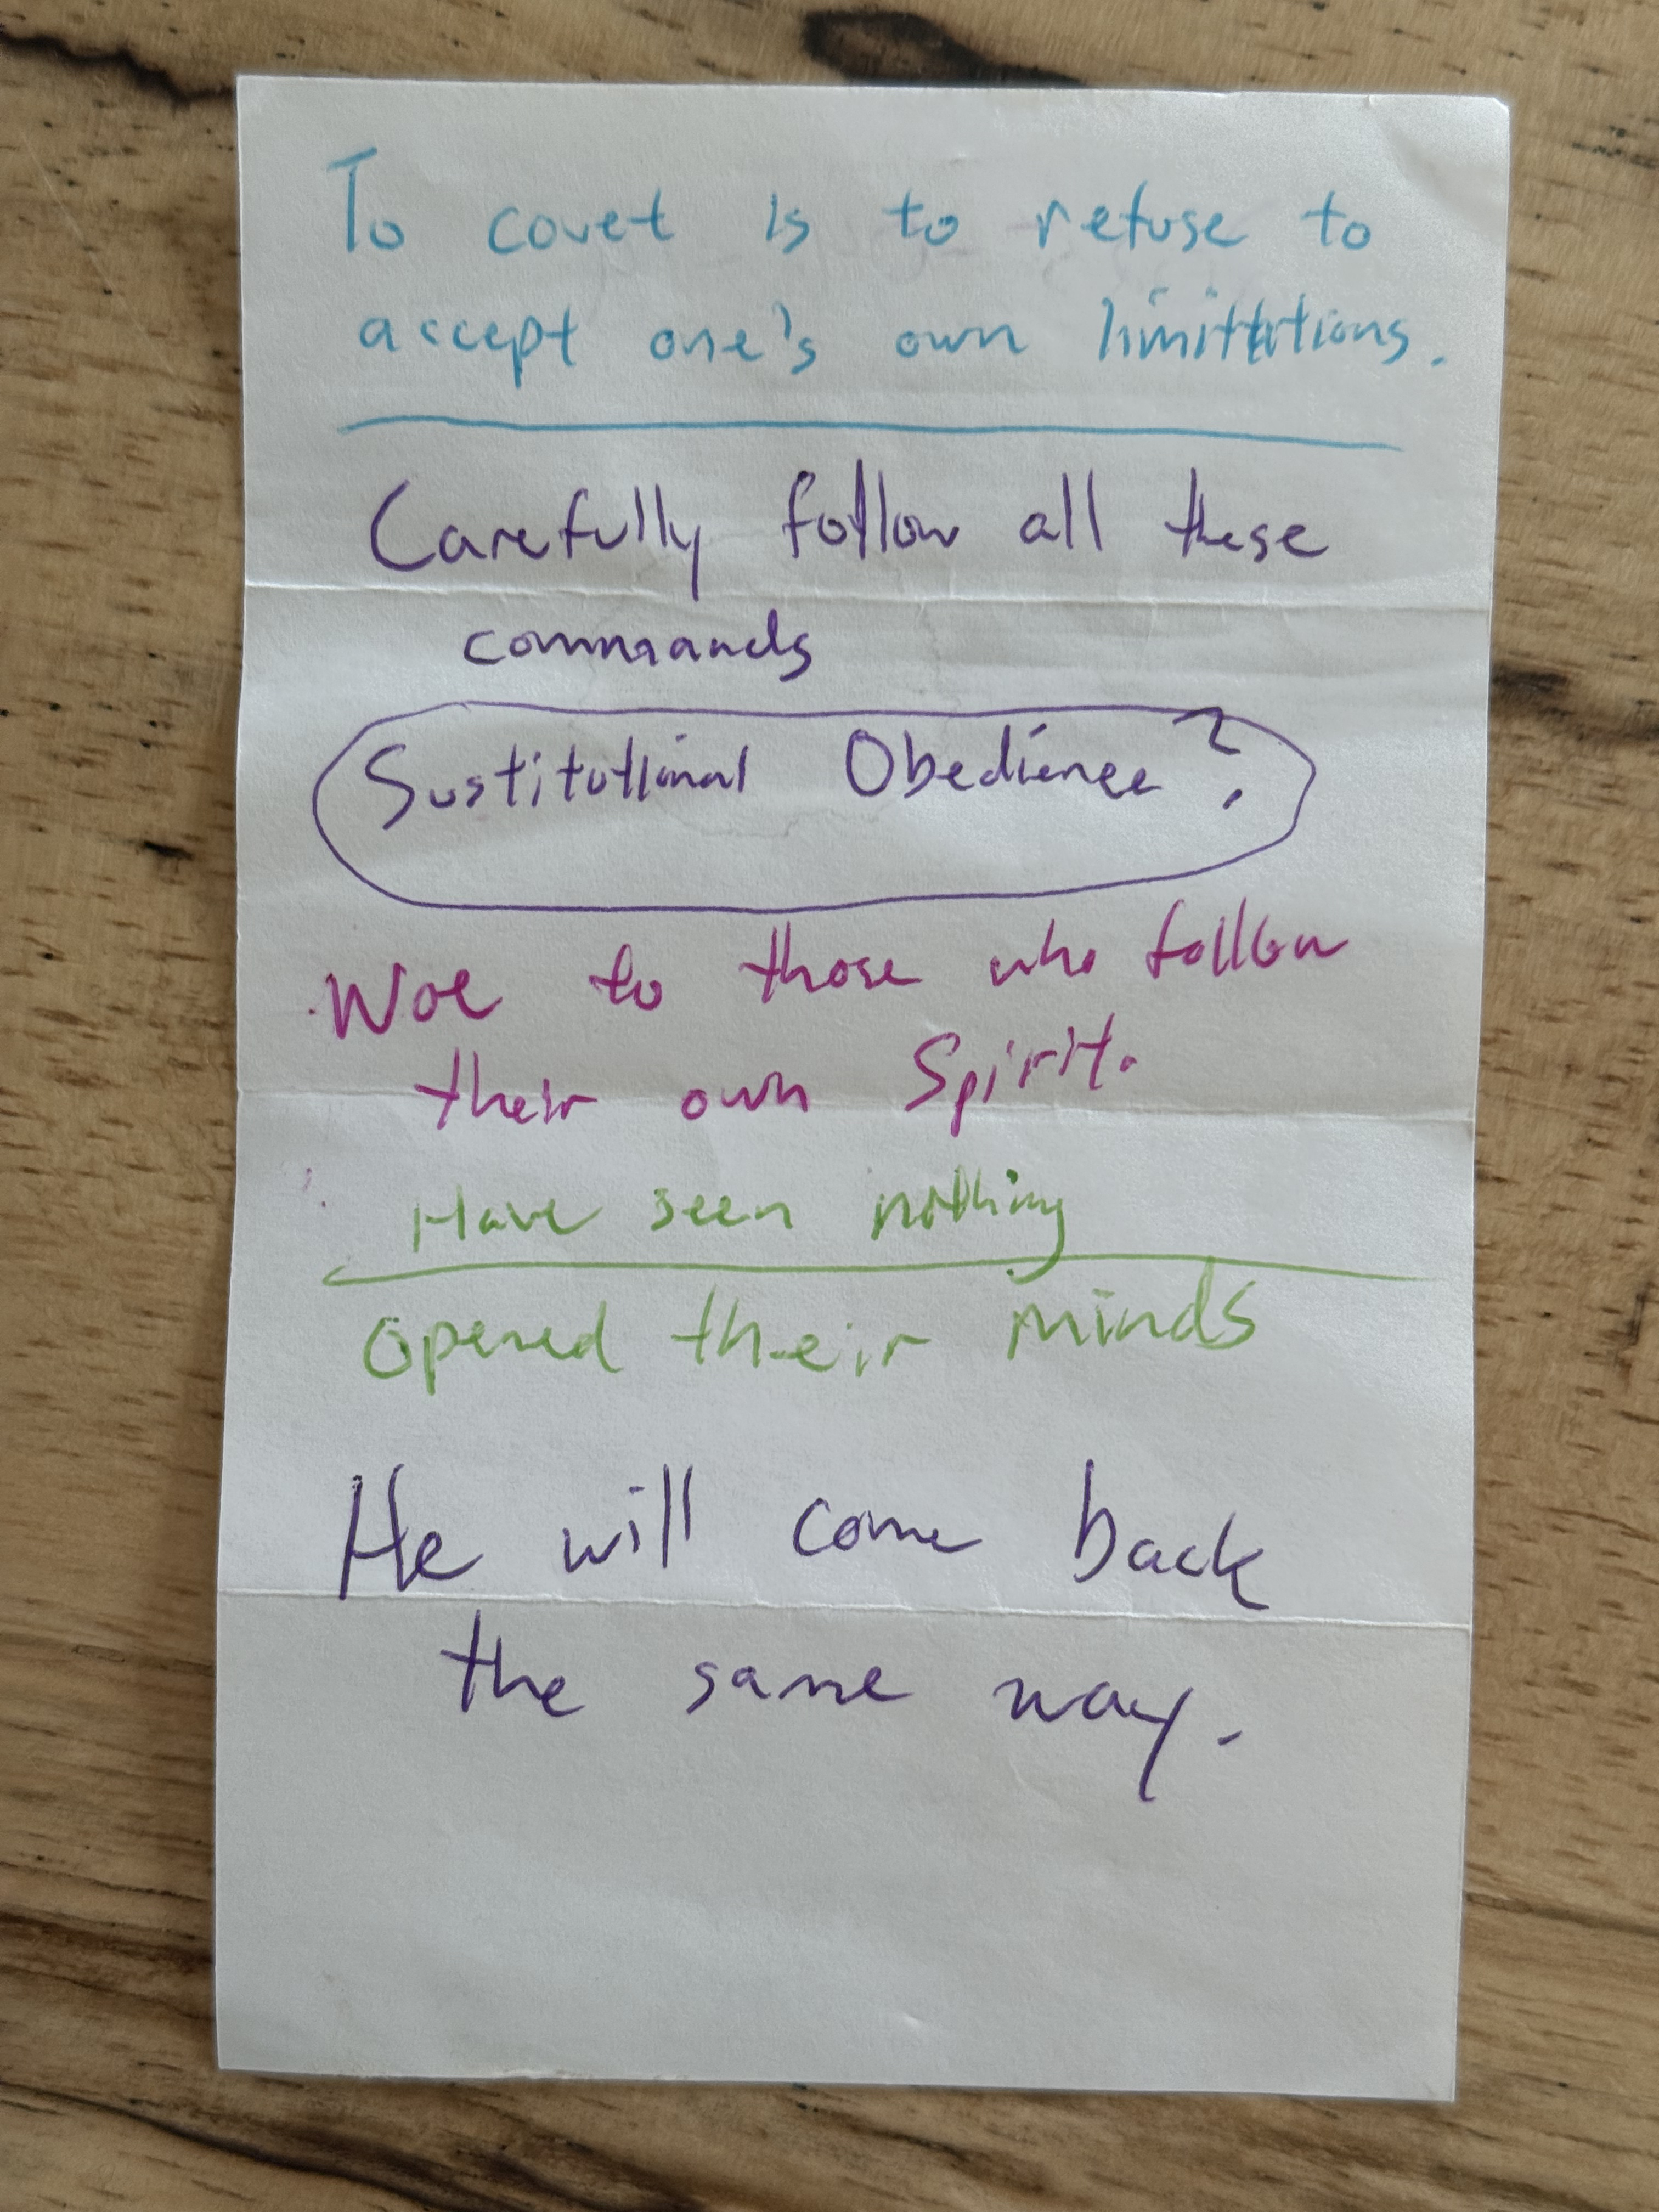 To covet is to refuse to
accept one's own limittations.
Carefully follow all these
commands
Sustitutional Obedience?
Woe to those who follow
their own Spirit.
Have seen nothing
Opened their minds
He will come back
the same way.